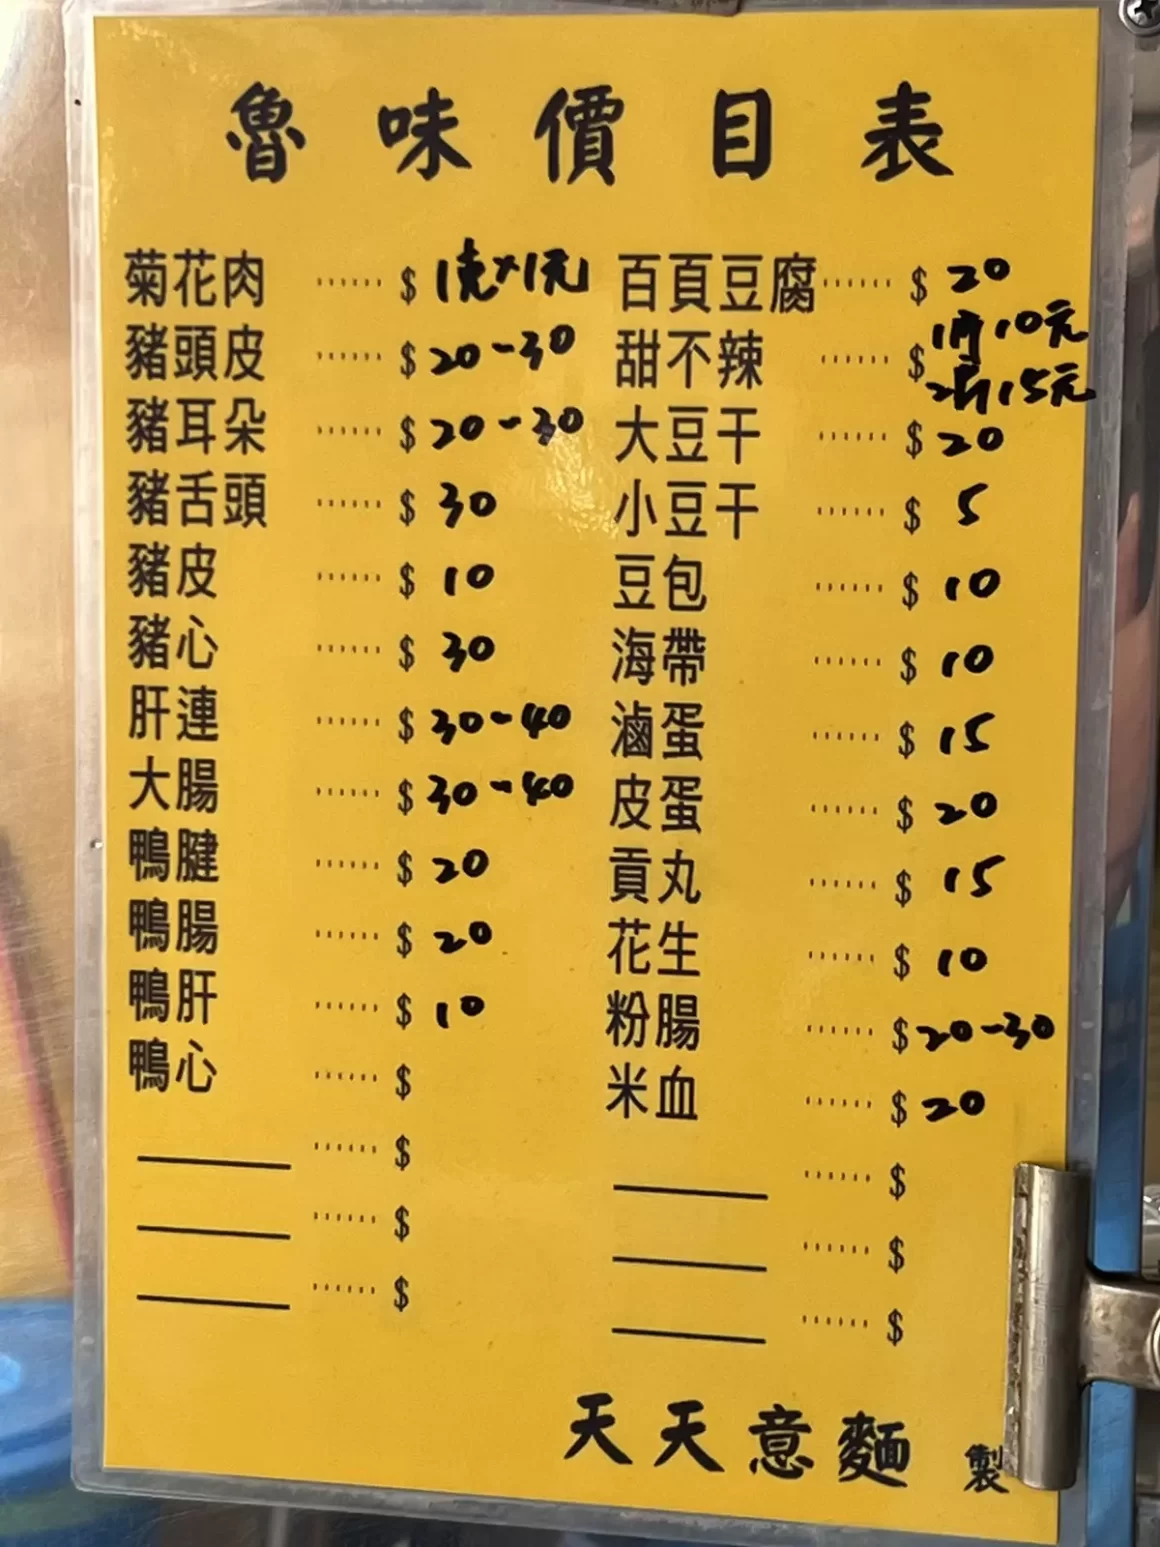 魯味價目表
菊花肉 ...... $ 1克×1元
豬頭皮 ...... $ 20-30
豬耳朵 ...... $ 20-30
豬舌頭 ...... $ 30
豬皮 ...... $ 10
豬心 ...... $ 30
肝連 ...... $ 30-40
大腸 ...... $ 30-40
鴨腱 ...... $ 20
鴨腸 ...... $ 20
鴨肝 ...... $ 10
鴨心 ...... $
...... $
...... $
...... $
百頁豆腐 ...... $ 20
甜不辣 ...... $ 1片10元
2片15元
大豆干 ...... $ 20
小豆干 ...... $ 5
豆包 ...... $ 10
海帶 ...... $ 10
滷蛋 ...... $ 15
皮蛋 ...... $ 20
貢丸 ...... $ 15
花生 ...... $ 10
粉腸 ...... $ 20-30
米血 ...... $ 20
...... $
...... $
...... $
天天意麵 製